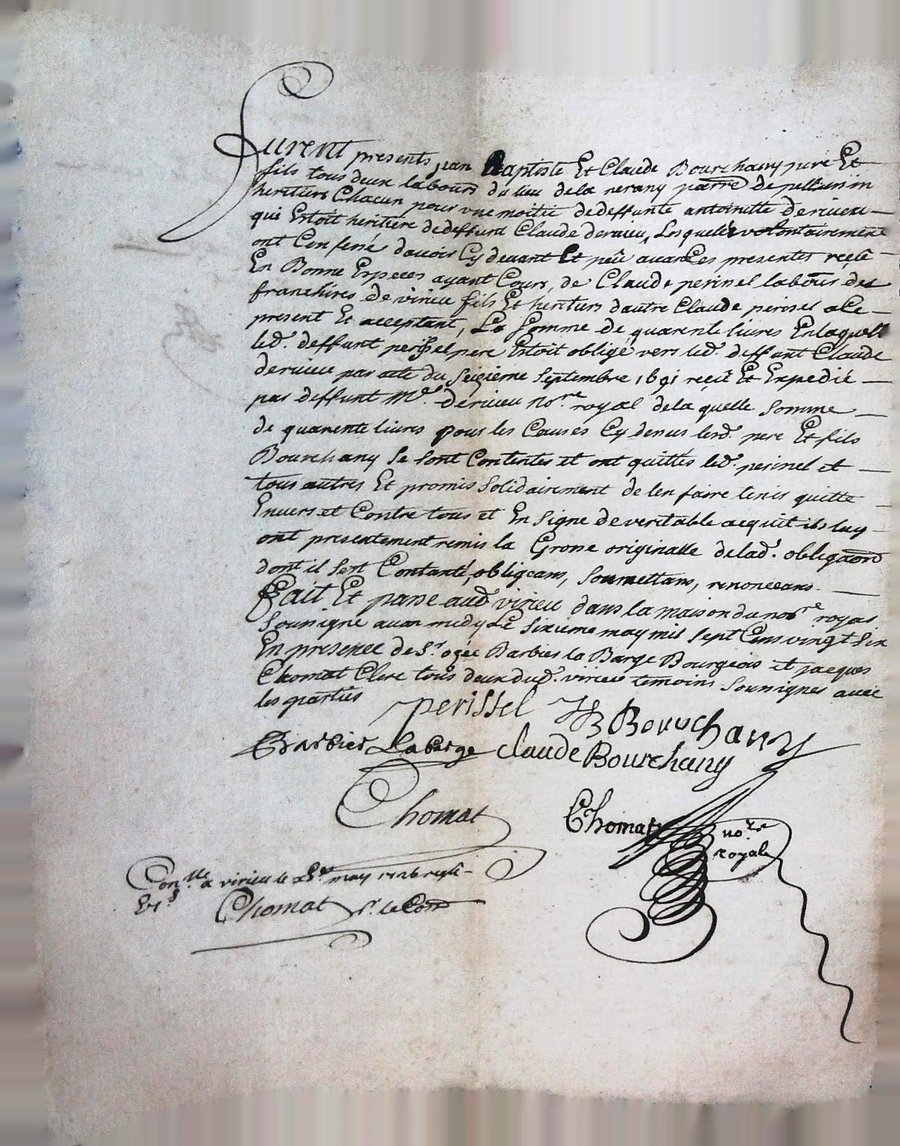 Furent presents jean Baptiste Et Claude Bourchany pere Et
fils tous deux labours du lieu dela nerany parre de pellussin
heritiers Chacun pour vne moitie dedeffunte antoinette derieu
qui Estoit heritiere dedeffunt Claude derieu, Lesquels volontairement
ont Confessé dauoir Cy deuant Et peu auant Ces presentes receu
En Bonne Especes ayant Cours, de Claude perissel labour des
franchises de virieu fils Et heritiers dautre Claude perissel a Ce
present Et acceptant, La Somme de quarente liures Enlaquelle
led. deffunt perissel pere Estoit obligé vers led. deffunt Claude
derieu par acte du Seizieme Septembre 1691 receu Et Expedié
par deffunt Me. derieu nore. royal dela quelle Somme
de quarente liures pour les Causes Cy dessus lesd. pere Et fils
Bourchany Se sont Contentés et ont quittes led. perissel et
tous autres Et promis Solidairement de len faire tenir quitte
Enuers et Contre tous et En Signe de veritable acquit ils luy
ont presentement remis la Grosse originalle delad. obligaon
dont il sest Contanté, obligeans, Soumettans, renonceans
Fait Et passé aud virieu dans la maison du nore royal
Soussigné auan midy Le Sixieme may mil sept Cens vingt Six
En presence de Sr ogée Barbier la Barge Bourgeois et jacques
Chomat Clerc tous deux dud. virieu temoins Soussignes auec
les parties
perissel JB Bourchany
Barbier Labarge Claude Bourchany
Chomat
Chomat nore royal
Conlle a virieu le may 1726
Chomat